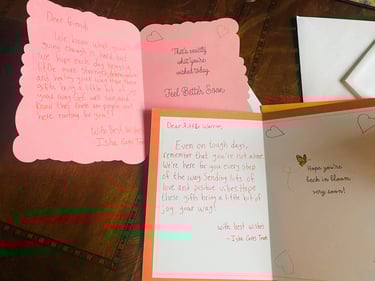 Dear friend,
We know what you're
going through is hard, but
We hope each day brings a
little more strength,
and healing your way. Hope these
gifts bring a little bit of joy
and
know that there are people out
here rooting for you!
With best wishes
- Isha Cares Team
That's exactly
what you're
wished today.
Feel Better Soon.
Dear Little Warrior,
Even on tough days,
remember that you're not alone
We're here for you every step
of the way. Sending lots of
love and positive vibes. Hope
these gifts bring a little bit of
joy your way!
With best wishes
- Isha Cares Team
Hope you're
back in bloom
very soon!